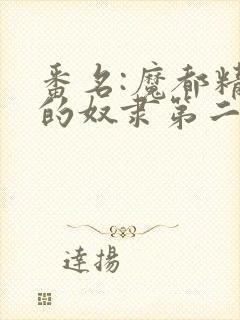 番名:魔都精
的奴隶第二
達揚